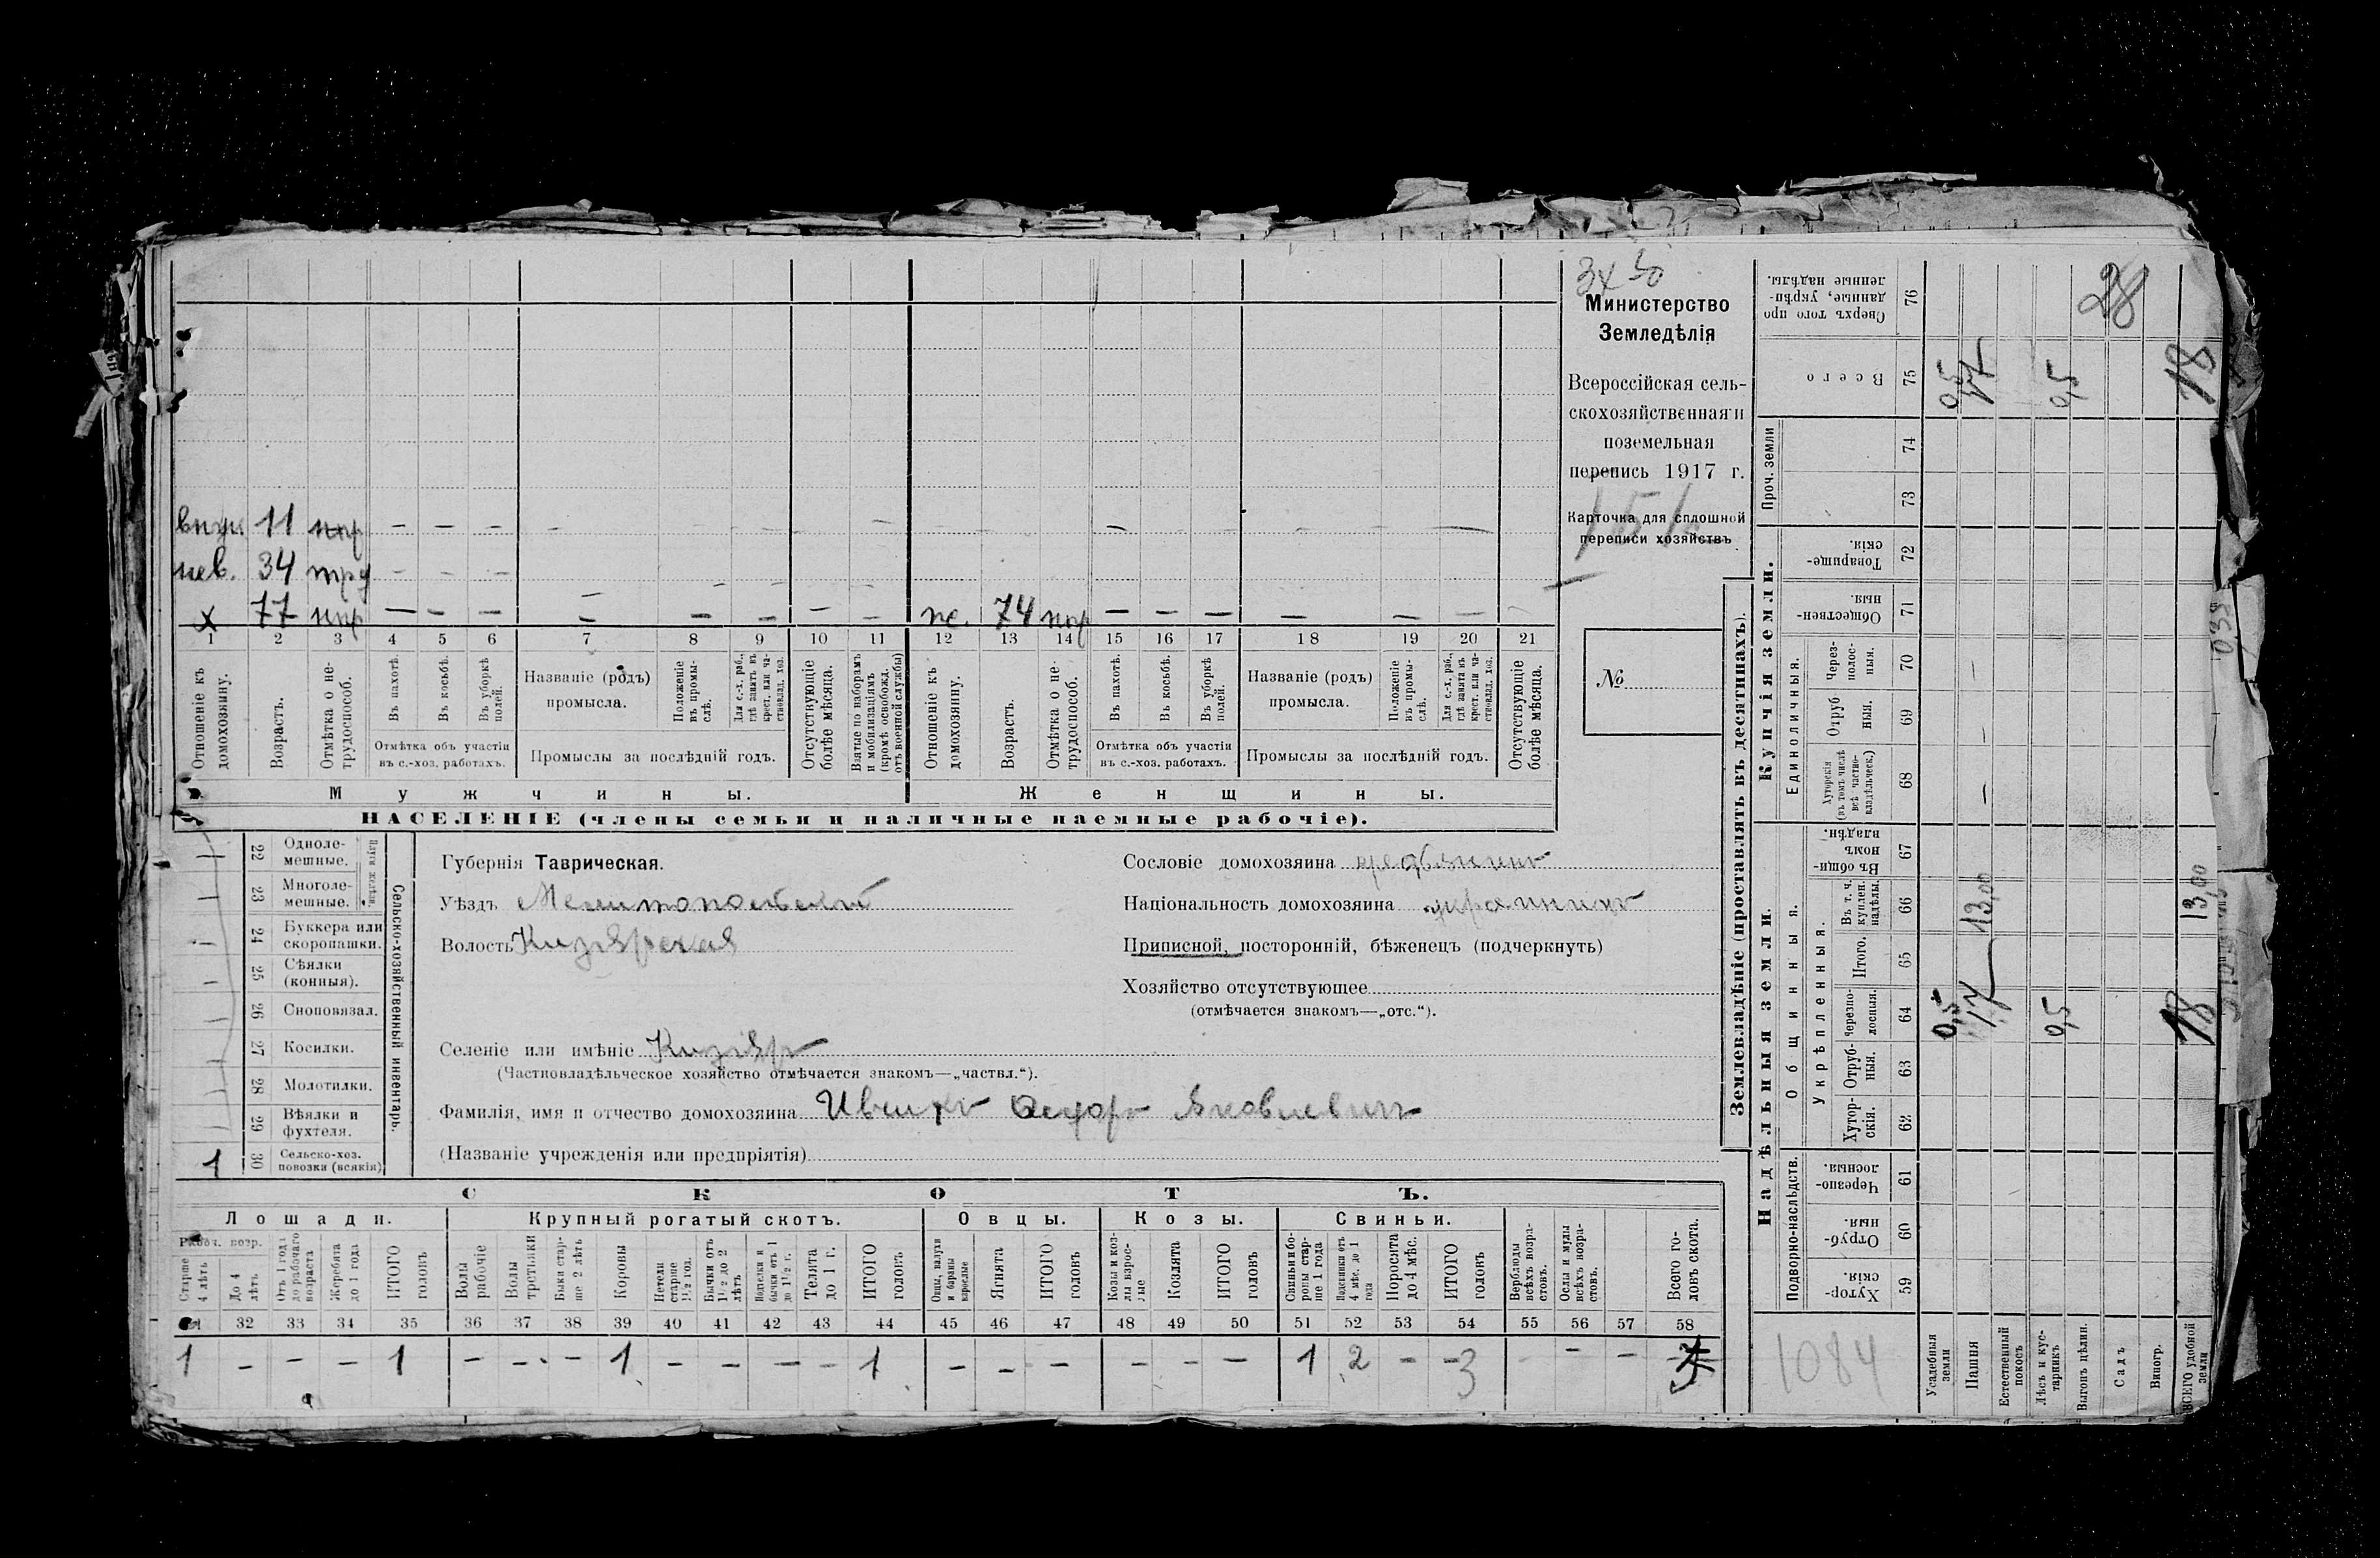 34 50
Министерство
Земледѣлія
Всероссійская сель-
скохозяйственная и
поземельная
перепись 1917 г.
151
Карточка для сплошной
переписи хозяйствъ
№
внук. 11 нтр — — — — — — — — — — — — — — —
чел. 34 труд — — — — — — —
х 77 нтр — — — — — — — — ж. 74 нтр — — — — — —
1 2 3 4 5 6 7 8 9 10 11 12 13 14 15 16 17 18 19 20 21
Отношеніе къ домохозяину.
Возрастъ.
Отмѣтка о не-трудоспособ.
Въ пахотѣ.
Въ косьбѣ.
Въ уборкѣ полей.
Отмѣтка объ участіи въ с.-хоз. работахъ.
Названіе (родъ) промысла.
Положеніе въ промы-слѣ.
Для с.-х. раб., гдѣ занятъ въ крест. или ча-стновлад. хоз.
Промыслы за послѣдній годъ.
Отсутствующіе болѣе мѣсяца.
Взятые по наборамъ и мобилизаціямъ (кромѣ освобожд. отъ военной службы)
Отношеніе къ домохозяину.
Возрастъ.
Отмѣтка о не-трудоспособ.
Въ пахотѣ.
Въ косьбѣ.
Въ уборкѣ полей.
Отмѣтка объ участіи въ с.-хоз. работахъ.
Названіе (родъ) промысла.
Положеніе въ промы-слѣ.
Для с.-х. раб., гдѣ занята въ крест. или ча-стновлад. хоз.
Промыслы за послѣдній годъ.
Отсутствующіе болѣе мѣсяца.
Мужчины. Женщины.
НАСЕЛЕНІЕ (члены семьи и наличные наемные рабочіе).
Сельско-хозяйственный инвентарь.
— 22 Одноле-мешные.
— 23 Многоле-мешные.
— 24 Буккера или скоропашки.
— 25 Сѣялки (конныя).
— 26 Сноповязал.
— 27 Косилки.
— 28 Молотилки.
— 29 Вѣялки и фухтеля.
1 30 Сельско-хоз. повозки (всякія)
Губернія Таврическая.
Уѣздъ Мелитопольскій
Волость Кизіярская
Селеніе или имѣніе Кизіяръ
(Частновладѣльческое хозяйство отмѣчается знакомъ—„частвл.“).
Фамилія, имя и отчество домохозяина Ивчукъ Федоръ Яковлевичъ
(Названіе учрежденія или предпріятія)
Сословіе домохозяина крестьянинъ
Національность домохозяина украинецъ
Приписной, посторонній, бѣженецъ (подчеркнуть)
Хозяйство отсутствующее
(отмѣчается знакомъ—„отс.“).
СКОТЪ.
Лошади. Крупный рогатый скотъ. Овцы. Козы. Свиньи.
Рабоч. возр.
Старше 4 лѣтъ
До 4 лѣтъ
Отъ 1 года до рабочаго возраста
Жеребята до 1 года
ИТОГО головъ
Волы рабочіе
Волы третьяки
Быки стар-ше 2 лѣтъ
Коровы
Нетели старше 1½ год.
Бычки отъ 1½ до 2 лѣтъ
Подтелки и бычки отъ 1 до 1½ г.
Телята до 1 г.
ИТОГО головъ
Овцы, валухи и бараны взрослые
Ягнята
ИТОГО головъ
Козы и коз-лы взрос-лые
Козлята
ИТОГО головъ
Свиньи и бо-ровы стар-ше 1 года
Подсвинки отъ 4 мѣс. до 1 года
Поросята до 4 мѣс.
ИТОГО головъ
Верблюды всѣхъ возра-стовъ.
Ослы и мулы всѣхъ возра-стовъ.
Всего го-ловъ скота.
31 32 33 34 35 36 37 38 39 40 41 42 43 44 45 46 47 48 49 50 51 52 53 54 55 56 57 58
1 — — — 1 — — — 1 — — — — 1 — — — — — — 1 2 — 3 — — — 5
Землевладѣніе (проставлять въ десятинахъ).
Надѣльныя земли. Купчія земли.
Подворно-наслѣдств.
Общинныя.
Укрѣпленныя.
Единоличныя.
Проч. земли
Хутор-скія. 59
Отруб-ныя. 60
Черезпо-лосныя. 61
Хутор-скія. 62
Отруб-ныя. 63
Черезпо-лосныя. 64
Итого. 65
Въ т. ч. куплен. надѣлы. 66
Въ общи-номъ владѣн. 67
Хуторскія (въ томъ числѣ всѣ частно-владѣльческ.) 68
Отруб-ныя. 69
Через-полос-ныя. 70
Обществен-ныя. 71
Товарище-скія. 72
73
74
Всего 75
Сверхъ того про-данные, укрѣп-ленные надѣлы. 76
1084
Усадебныя земли 0,5 0,5
Пашня 17 13,00 — — — 17
Естественный покосъ
Лѣсъ и кус-тарникъ 0,5 0,5
Выгонъ цѣлин.
Садъ 28
Виногр.
ВСЕГО удобной земли 18 13,00 18